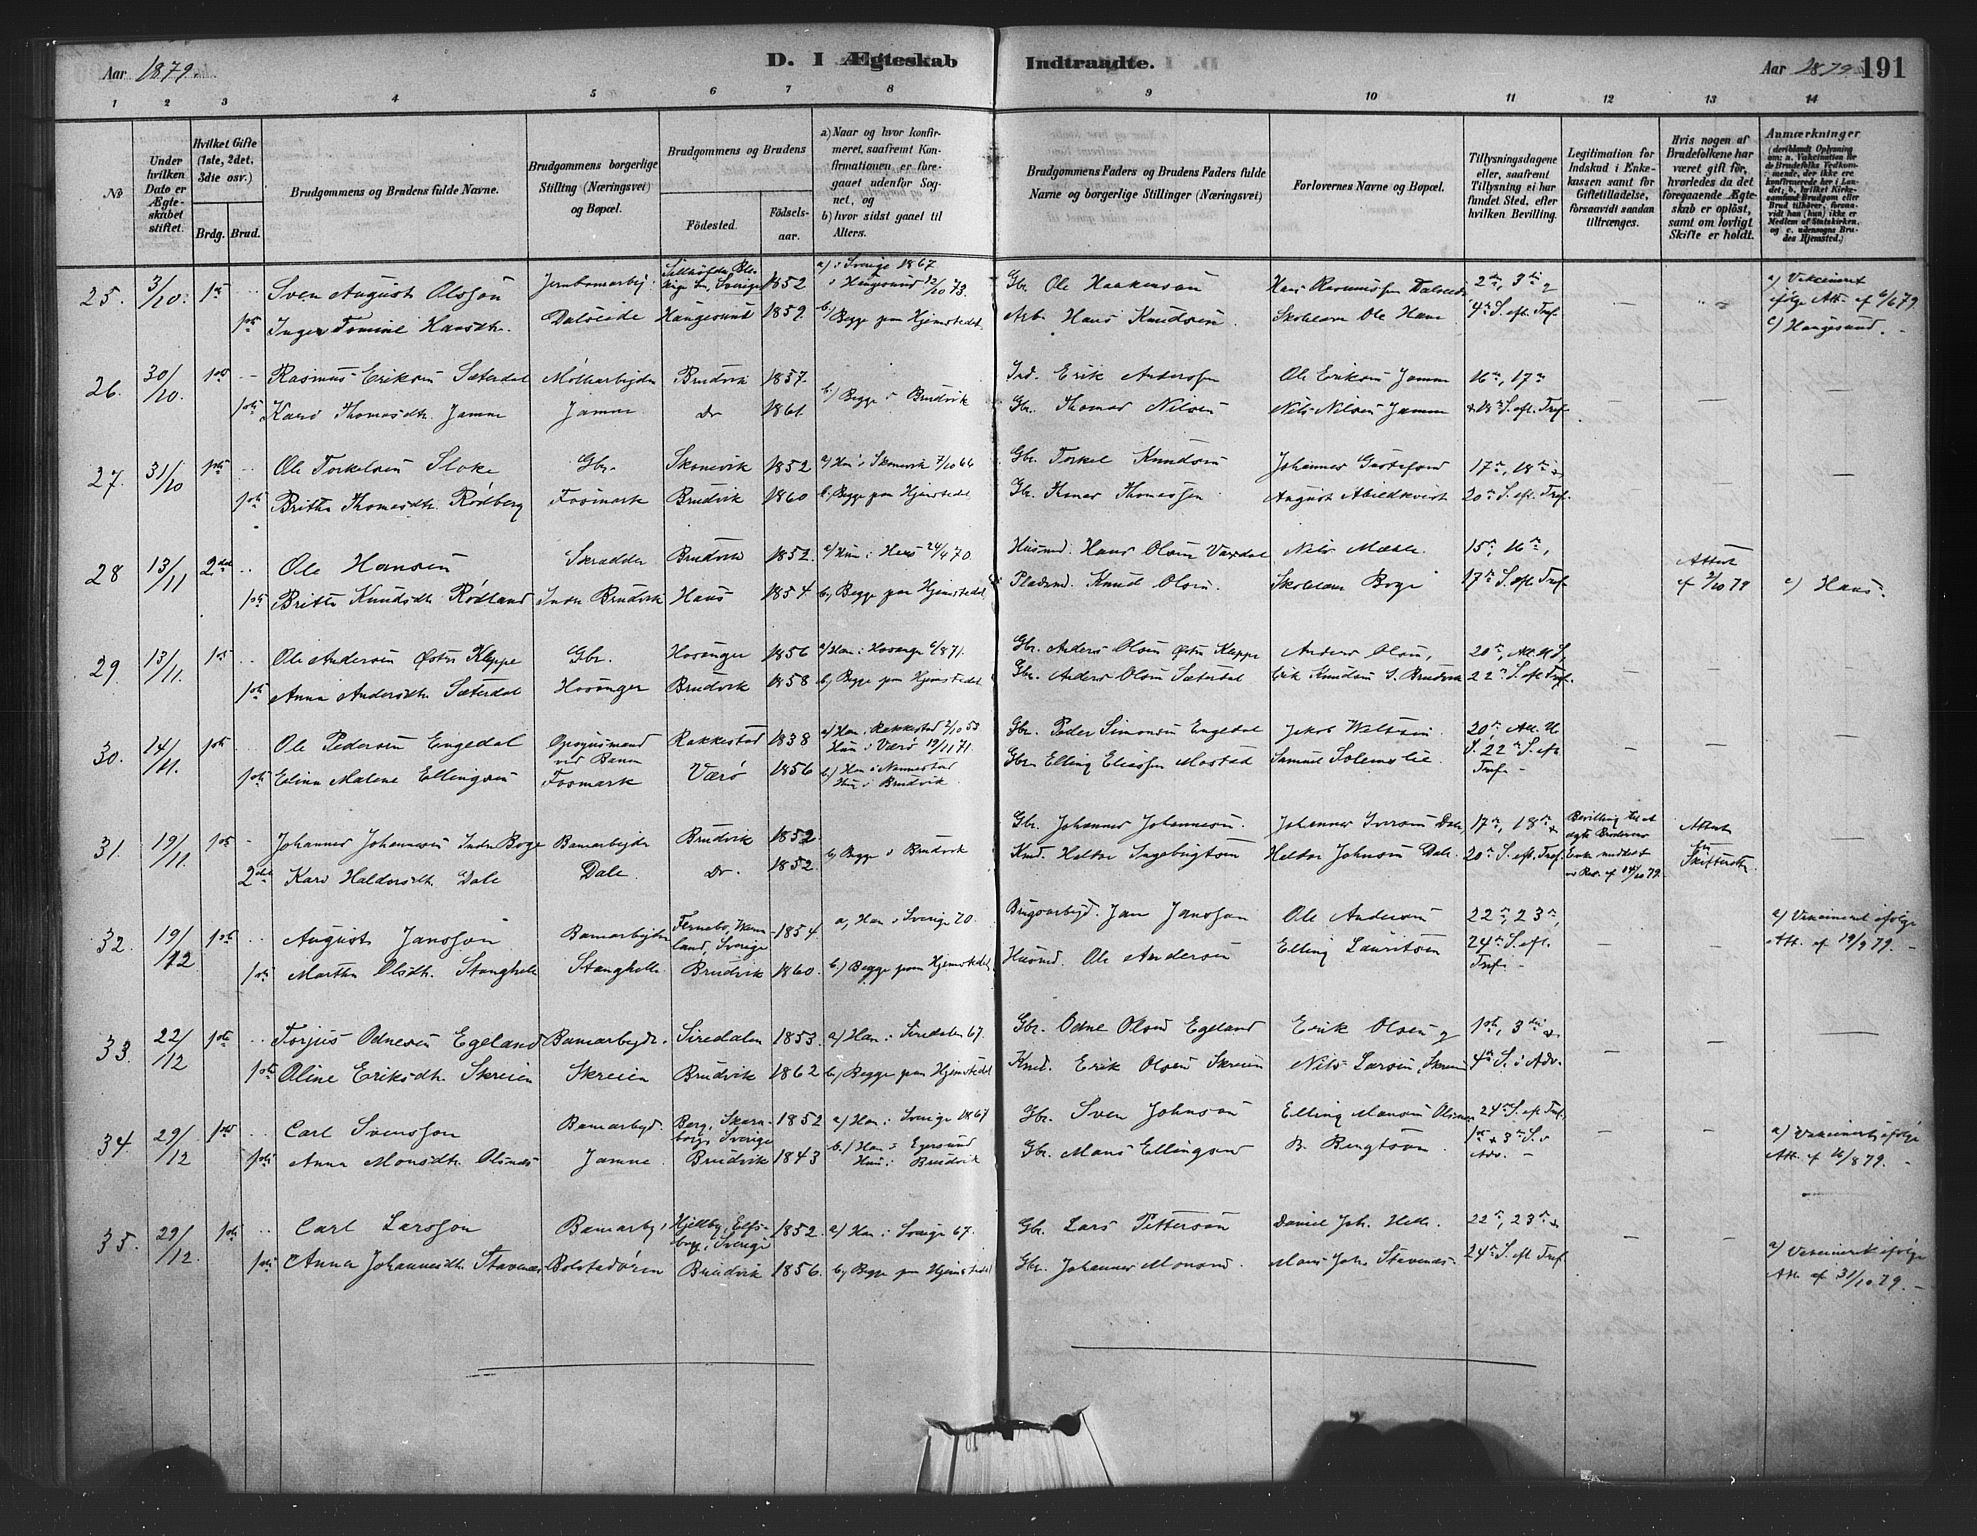 Aar 1879. D. I Ægteskab Indtraadte. Aar 1879 191
1 2 3 4 5 6 7 8 9 10 11 12 13 14
No
Under hvilken Dato er Ægteskabet stiftet.
Hvilket Gifte (1ste, 2det, 3die osv.)
Brdg. Brud.
Brudgommens og Brudens fulde Navne.
Brudgommens borgerlige Stilling (Næringsvei) og Bopæl.
Brudgommens og Brudens
Födested. Födselsaar.
a) Naar og hvor konfirmeret, saafremt Konfirmationen er foregaaet udenfor Sognet, og
b) hvor sidst gaaet til Alters.
Brudgommens Faders og Brudens Faders fulde Navne og borgerlige Stillinger (Næringsvei)
Forlovernes Navne og Bopæl.
Tillysningsdagene eller, saafremt Tillysning ei har fundet Sted, efter hvilken Bevilling.
Legitimation for Indskud i Enkekassen samt for Giftetilladelse, forsaavidt saadan tiltrænges.
Hvis nogen af Brudefolkene har været gift før, hvorledes da det foregaaende Ægteskab er opløst, samt om lovligt Skifte er holdt.
Anmærkninger
25. 3/10. 1ste Sven August Olsson Jernbanearbeid. Sverige 1852 a) i Sverige 1867 Gbr. Ole Haakenson 2den, 3die og a) Vakcineret
1ste Inger Tomine Hansdtr. Dalseide Haugesund 1859. b) Begge paa Hjemstedet Arb. Hans Knudsen. Skolelærer Ole Hane 4de S. eft. Tref. ifølge Att. af 6/6 79. c) Haugesund.
26. 30/10. 1ste Rasmus Eriksen Sæterdal Mölkarbeider Brudvik 1857. b) Begge i Brudvik Ind. Erik Andersen Ole Eriksen Jamne 16de, 17de
1ste Kari Thomasdtr. Jamne Jamne Do 1861 Gbr. Thomas Nilsen Nils Nilsen Jamne & 18de S. eft. Tref.
27. 31/10 1ste Ole Torkelsen Gbr. Skonevik 1852 a) Han i Skonevik 7/10 66 Gbr. Torkel Knudsen Johannes 17de, 18de &
1ste Britha Thomasdtr. Rödberg Fosmark Brudvik 1860 b) Begge paa Hjemstedet Gbr. Thomassen August Abildkvist 20de S. eft. Tref.
28 13/11 2det Ole Hansen Skrædder Brudvik 1852. a) Hun i Haus 24/4 70. Husmd. Hans Olsen Vaxdal Nils Mæhle 15de, 16de, Attest
1ste Britha Knudsdtr. Rödland Indre Brudvik Haus 1854 b) Begge paa Hjemstedet Pladsmd. Knud Olsen. Skolelærer Boge 17de S. eft. Tref. af 9/10 79 c) Haus.
29 13/11. 1ste Ole Andersen Østre Kleppe Gbr. Hosanger 1856 a) Han i Hosanger 6/8 71. Gbr. Anders Olsen Østre Kleppe Anders Olsen, 20de, All. H. S.
1ste Anna Andersdtr. Sæterdal Hosanger Brudvik 1858 b) Begge paa Hjemstedet Gbr. Anders Olsen Sæterdal Erik Knudsen I. Brudvik 22de S. eft. Tref.
30. 14/11. 1ste Ole Pedersen Engedal Opsynsmand ved Banen Rakkestad 1838 a) Han i Rakkestad 2/10 53 Hun i Værö 19/11 71. Gbr. Peder Simonsen Engedal Jakob 20de, All. H.
1ste Elina Malene Ellingsen Fosmark Værö 1856 b) Han i Nannestad Hun i Brudvik Gbr. Elling Eliassen Mostad Samuel Solemslie S. 22de S. eft. Tref.
31. 19/11. 1ste Johannes Johannesen Indre Boge Banearbeider Brudvik 1852. b) Begge i Brudvik Gbr. Johannes Johannesen. Johannes Iversen Dale, 17de, 18de & Bevilling Attest
2det Kari Haldorsdtr. Dale Dale. Do. 1852. Knud. Heldor Ingebrigtsen Heldor Johnsen Dale 20de S. eft. Tref. Enke meddelt Res. af 14/10 79. fra Skifteretten
32. 19/12 1ste August Jansson Banearbeider Fernebo, Wermland, Sverige 1854 a) Han i Sverige 70. Brugsarbeid. Jan Jansson Ole Andersen 22de, 23de, a) Vakcineret ifølge
1ste Martha Olsdtr. Stanghelle Stanghelle Brudvik 1860. b) Begge paa Hjemstedet Husmd. Ole Andersen Elling Lauritsen 24de S. eft. Tref. Att. af 19/9 79.
33. 22/12 1ste Torjus Odnesen Egeland Banearbeider. Siredalen 1853. a) Han i Siredalen 67. Gbr. Odne Olsen Egeland Erik Olsen og 1ste, 3die &
1ste Oline Eriksdtr. Skreien Skreien Brudvik 1862 b) Begge paa Hjemstedet Erik Olsen Skreien Nils Larsen, Skreien 4de S. i Adv.
34. 29/12 1ste Carl Svensson Banearbeid. Berg, Skaraborgs, Sverige 1852 a) Han i Sverige 1867 Gbr. Sven Johnson Elling Monsen Olsnes 24de S. eft. Tref.
1ste Anna Monsdtr. Olsnes Jamne. Brudvik 1843 b) Han i Egersund Hun i Brudvik Gbr. Mons Ellingsen B. Bengtson 1ste & 3die S. i Adv. a) Vakcineret ifølge Att. af 4/8 79.
35. 29/12. 1ste Carl Larsson Banearb. Hjelby, Elfsborg, Sverige 1852. a) Han i Sverige 67. Gbr. Lars Petterson Daniel Joh. Helle. 22de, 23de &
1ste Anna Johannesdtr. Stavenes Bolstadören Brudvik 1856. b) Begge paa Hjemstedet Gbr. Johannes Monsen. Mons Joh. Stavenes 24de S. eft. Tref. a) Vakcineret ifølge Att. af 31/10 79.